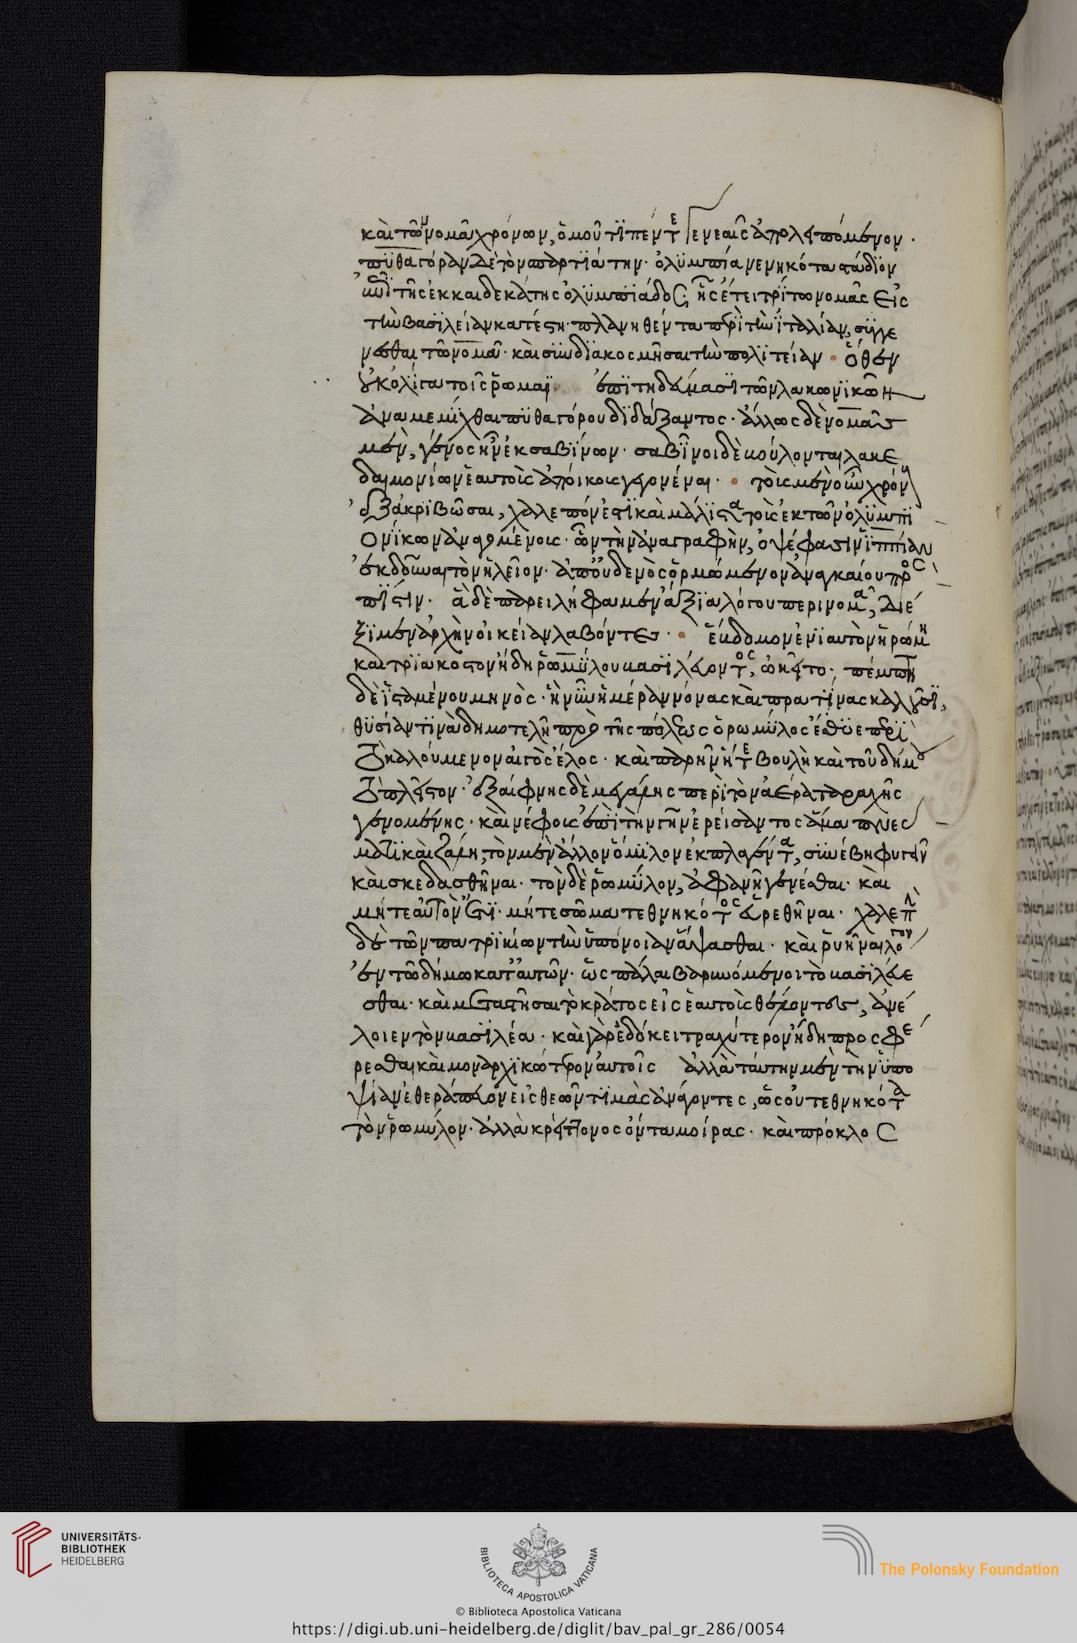 καὶ τῶν νομᾶ χρόνων, ὁμοῦ τϊ πέντε γενεαῖς ἀπολειπόμενον ·
πϋθαγόραν δὲ τὸν σπαρτϊάτην · ὀλϋμπία νενηκότα στάδϊον
ἐπὶ τῆς ἑκκαιδεκάτης ὀλϋμπϊάδος, ἧς ἔτει τρίτω νομᾶς εἰς
τὴν βασϊλείαν κατέστη · πλανηθέντα περὶ τὴν ϊταλίαν, συγγε
νέσθαι τῶ νομᾶ · καὶ συνδϊακοσμῆσαι τὴν πολϊτείαν · ὅθεν
οὐκ ὀλίγα τοῖς ῥωμαϊ ἐπϊτηδεύμασϊ τῶν λακωνϊκῶν
ἀναμεμίχθαι πϋθαγόρου δϊδάξαντος · ἄλλως δὲ νομᾶς
μὲν, γένος ἦν ἐκ σαβΐνων · σαβῖνοι δὲ βούλονται λακε
δαιμονίων ἑαυτοὺς ἀποίκους γεγονέναι · τοὺς μὲν οὖν χρόνους
ἐξακρϊβῶσαι, χαλεπόν ἐστϊ καὶ μάλϊστα τοὺς ἐκ τῶν ὀλϋμπϊ
ονίκων ἀναγομένους · ὧν τὴν ἀναγραφὴν, ὀψέ φασιν ἱππίαν
ἐκδοῦναι τὸν ἠλεῖον · ἀπ' οὐδενὸς ὁρμώμενον ἀναγκαίου πρὸς
πϊστιν · ἃ δὲ παρειλήφαμεν ἀξϊα λόγου περι νομᾶ, διέ
ξϊμεν ἀρχὴν οἰκείαν λαβόντες · ἕβδομον ἐνϊαυτὸν ἡ ῥώμη
καὶ τρϊακοστὸν ἤδη ῥωμϋλου βασϊλεύοντος, ὠκεῖτο · πέμπτη
δὲ ἱσταμένου μηνὸς · ἣν νῦν ἡμέραν νόνας καπρατίνας καλοῦσϊ,
θϋσίαν τϊνὰ δημοτελῆ πρὸ τῆς πόλεως ὁ ρωμϋλος ἔθϋε περὶ
τὸ καλούμενον αἰγὸς ἕλος · καὶ παρῆν ἥ τε βουλὴ καὶ τοῦ δήμου
τὸ πλεῖστον · ἐξαίφνης δὲ μεγάλης περὶ τὸν ἀέρα ταραχῆς
γενομένης · καὶ νέφους ἐπὶ τὴν γῆν ἐρείσαντος ἅμα πνεύ
ματϊ καὶ ζάλη, τὸν μὲν ἄλλον ὅμϊλον ἐκπλαγέντα, συνέβη φυγεῖν
καὶ σκεδασθῆναι · τὸν δὲ ῥωμύλον, ἀφανῆ γενέσθαι · καὶ
μήτε αὐτὸν ἔτϊ · μήτε σῶμα τεθνηκότος εὑρεθῆναι · χαλεπὴν
δὲ τῶν πατρϊκίων τὴν ὑπόνοιαν ἅψασθαι · καὶ ῥυῆναι λόγον
ἐν τῶ δήμω κατ' αὐτῶν · ὡς πάλαι βαρυνόμενοι τὸ βασϊλεύε
σθαι · καὶ μεταστῆσαι τὸ κράτος εἰς ἑαυτοὺς θέλοντες, ἀνέ
λοιεν τὸν βασϊλέα · καὶ γὰρ ἐδόκει τραχύτερον ἤδη προσφέ
ρεσθαι καὶ μοναρχϊκώτερον αὐτοῖς ἀλλὰ ταύτην μὲν τὴν ὑπο
ψίαν ἐθεράπευον εἰς θεῶν τϊμὰς ἀνάγοντες, ὡς οὐ τεθνηκότα
τὸν ῥωμύλον · ἀλλὰ κρείττονος ὄντα μοίρας · καὶ πρόκλος
UNIVERSITÄTS-
BIBLIOTHEK
HEIDELBERG
BIBLIOTECA APOSTOLICA VATICANA
The Polonsky Foundation
© Biblioteca Apostolica Vaticana
https://digi.ub.uni-heidelberg.de/diglit/bav_pal_gr_286/0054